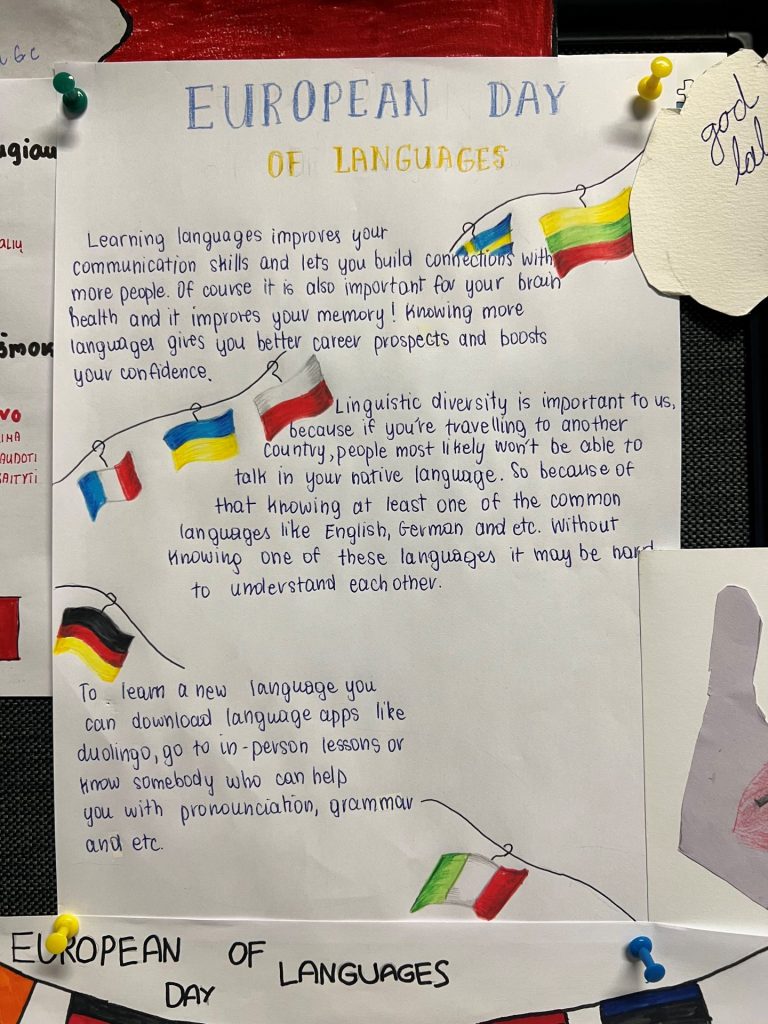 EUROPEAN DAY
OF LANGUAGES
Learning languages improves your
communication skills and lets you build connections with
more people. Of course it is also important for your brain
health and it improves your memory! Knowing more
languages gives you better career prospects and boosts
your confidence.
Linguistic diversity is important to us,
because if you're travelling to another
country, people most likely won't be able to
talk in your native language. So because of
that knowing at least one of the common
languages like English, German and etc. Without
knowing one of these languages it may be hard
to understand each other.
To learn a new language you
can download language apps like
duolingo, go to in-person lessons or
know somebody who can help
you with pronounciation, grammar
and etc.
EUROPEAN OF LANGUAGES
DAY
god